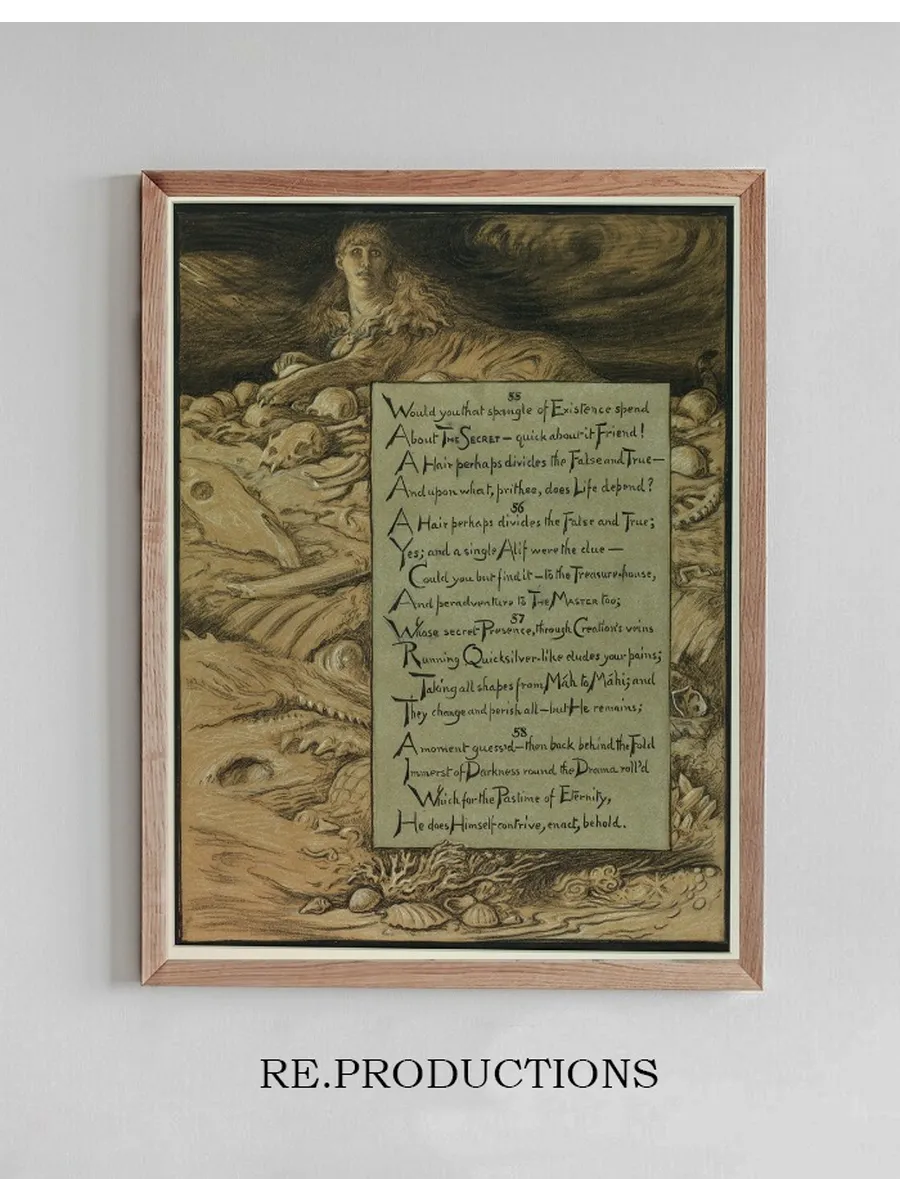 55
Would you that spangle of Existence spend
About THE SECRET — quick about it Friend!
A Hair perhaps divides the False and True —
And upon what, prithee, does Life depend?
56
A Hair perhaps divides the False and True;
Yes; and a single Alif were the clue —
Could you but find it — to the Treasure-house,
And peradventure to THE MASTER too;
57
Whose secret Presence, through Creation's veins
Running Quicksilver-like eludes your pains;
Taking all shapes from Máh to Máhi; and
They change and perish all — but He remains;
58
A moment guess'd — then back behind the Fold
Immerst of Darkness round the Drama roll'd
Which for the Pastime of Eternity,
He does Himself contrive, enact, behold.
RE.PRODUCTIONS